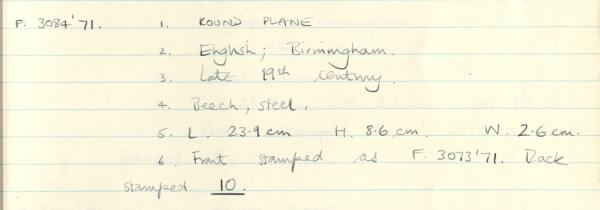 F. 3084'71. 1. ROUND PLANE
2. English; Birmingham.
3. Late 19th century.
4. Beech, steel.
5. L. 23.9 cm H. 8.6 cm. W. 2.6 cm.
6. Front stamped as F. 3073'71. Back
stamped 10.